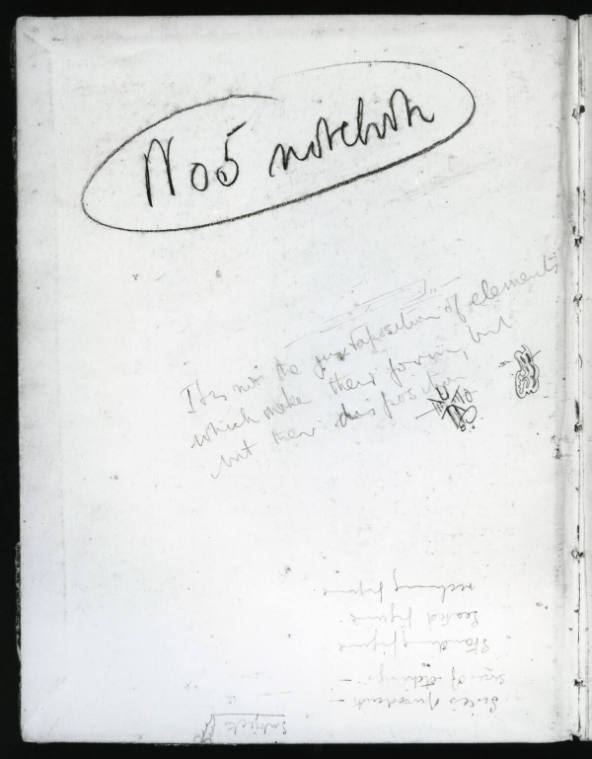 No 5 notebook
It is not the juxtaposition of elements
which make their forms, but
but their disposition
Subjects
of woodcuts -
of etchings -
Standing figure
Seated figure.
reclining figure